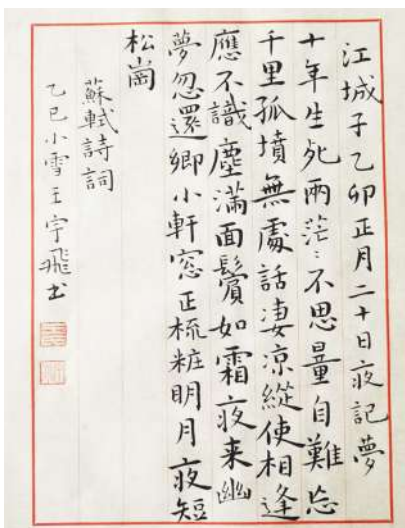 江城子乙卯正月二十日夜記夢
十年生死兩茫〻不思量自難忘
千里孤墳無處話淒涼縱使相逢
應不識塵滿面鬢如霜夜来幽
夢忽還鄉小軒窓正梳粧明月夜短
松崗
蘇軾詩詞
乙巳小雪王宇飛书